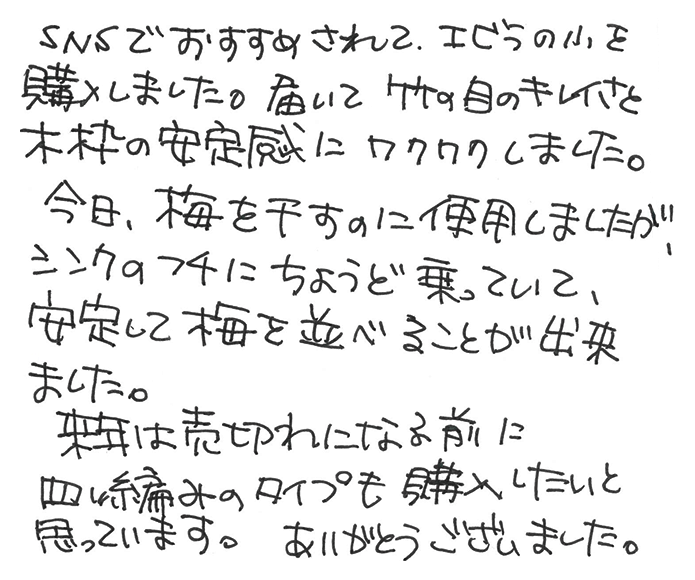 SNSでおすすめされて、エビラの小を
購入しました。届いて竹の目のキレイさと
木枠の安定感にワクワクしました。
今日、梅を干すのに使用しましたが、
シンクのフチにちょうど乗っていて、
安定して梅を並べることが出来
ました。
来年は売切れになる前に
四ツ編みのタイプも購入したいと
思っています。ありがとうございました。